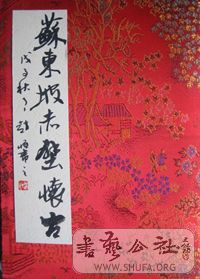 蘇東坡赤壁懷古
戊子秋月
書藝公社
WWW.SHUFA.ORG